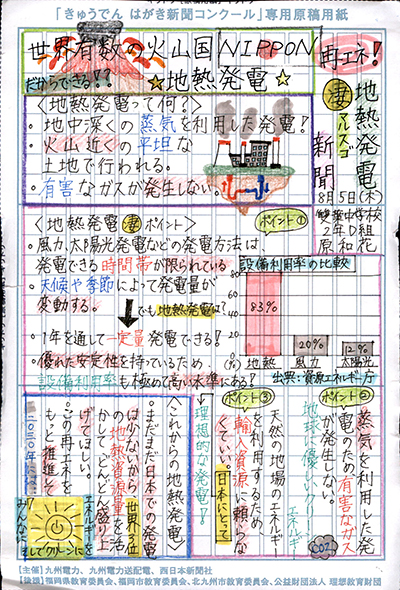 「きゅうでん はがき新聞コンクール」専用原稿用紙
世界有数の火山国NIPPON
だからできる!?
☆地熱発電☆
再エネ!
地熱発電
凄
マルスゴ
新聞
8月5日(木)
2年D組
原 和花
〈地熱発電って何?〉
・地中深くの蒸気を利用した発電!
・火山近くの平坦な
土地で行われる。
・有害なガスが発生しない。
〈地熱発電 凄 ポイント〉
ポイント①
・風力、太陽光発電などの発電方法は、
発電できる時間帯が限られている
・天候や季節によって発電量が
変動する。
でも地熱発電は?
・1年を通して一定量発電できる!
・優れた安定性を持っているため
設備利用率も極めて高い水準にある!
設備利用率の比較
80
60
40
20
0
(%)
83%
20%
12%
地熱
風力
太陽光
出典:資源エネルギー庁
ポイント②
蒸気を利用した発
電のため有害なガス
が発生しない。
地球に優しいクリーン
エネルギー
CO2
ポイント③
天然の地場のエネルギー
を利用するため、
輸入資源に頼らな
くていい。
日本にとって
理想的な発電!
〈これからの地熱発電〉
・まだまだ日本での発電
は少ないから、世界第3位
の地熱資源量を活
かしてどんどん盛り上
げてほしい。
・この再エネを
もっと推進して
二〇三〇年には、
エネルギーを
みんなに
そしてクリーンに
【主催】九州電力、九州電力送配電、西日本新聞社
【後援】福岡県教育委員会、福岡市教育委員会、北九州市教育委員会、公益財団法人 理想教育財団